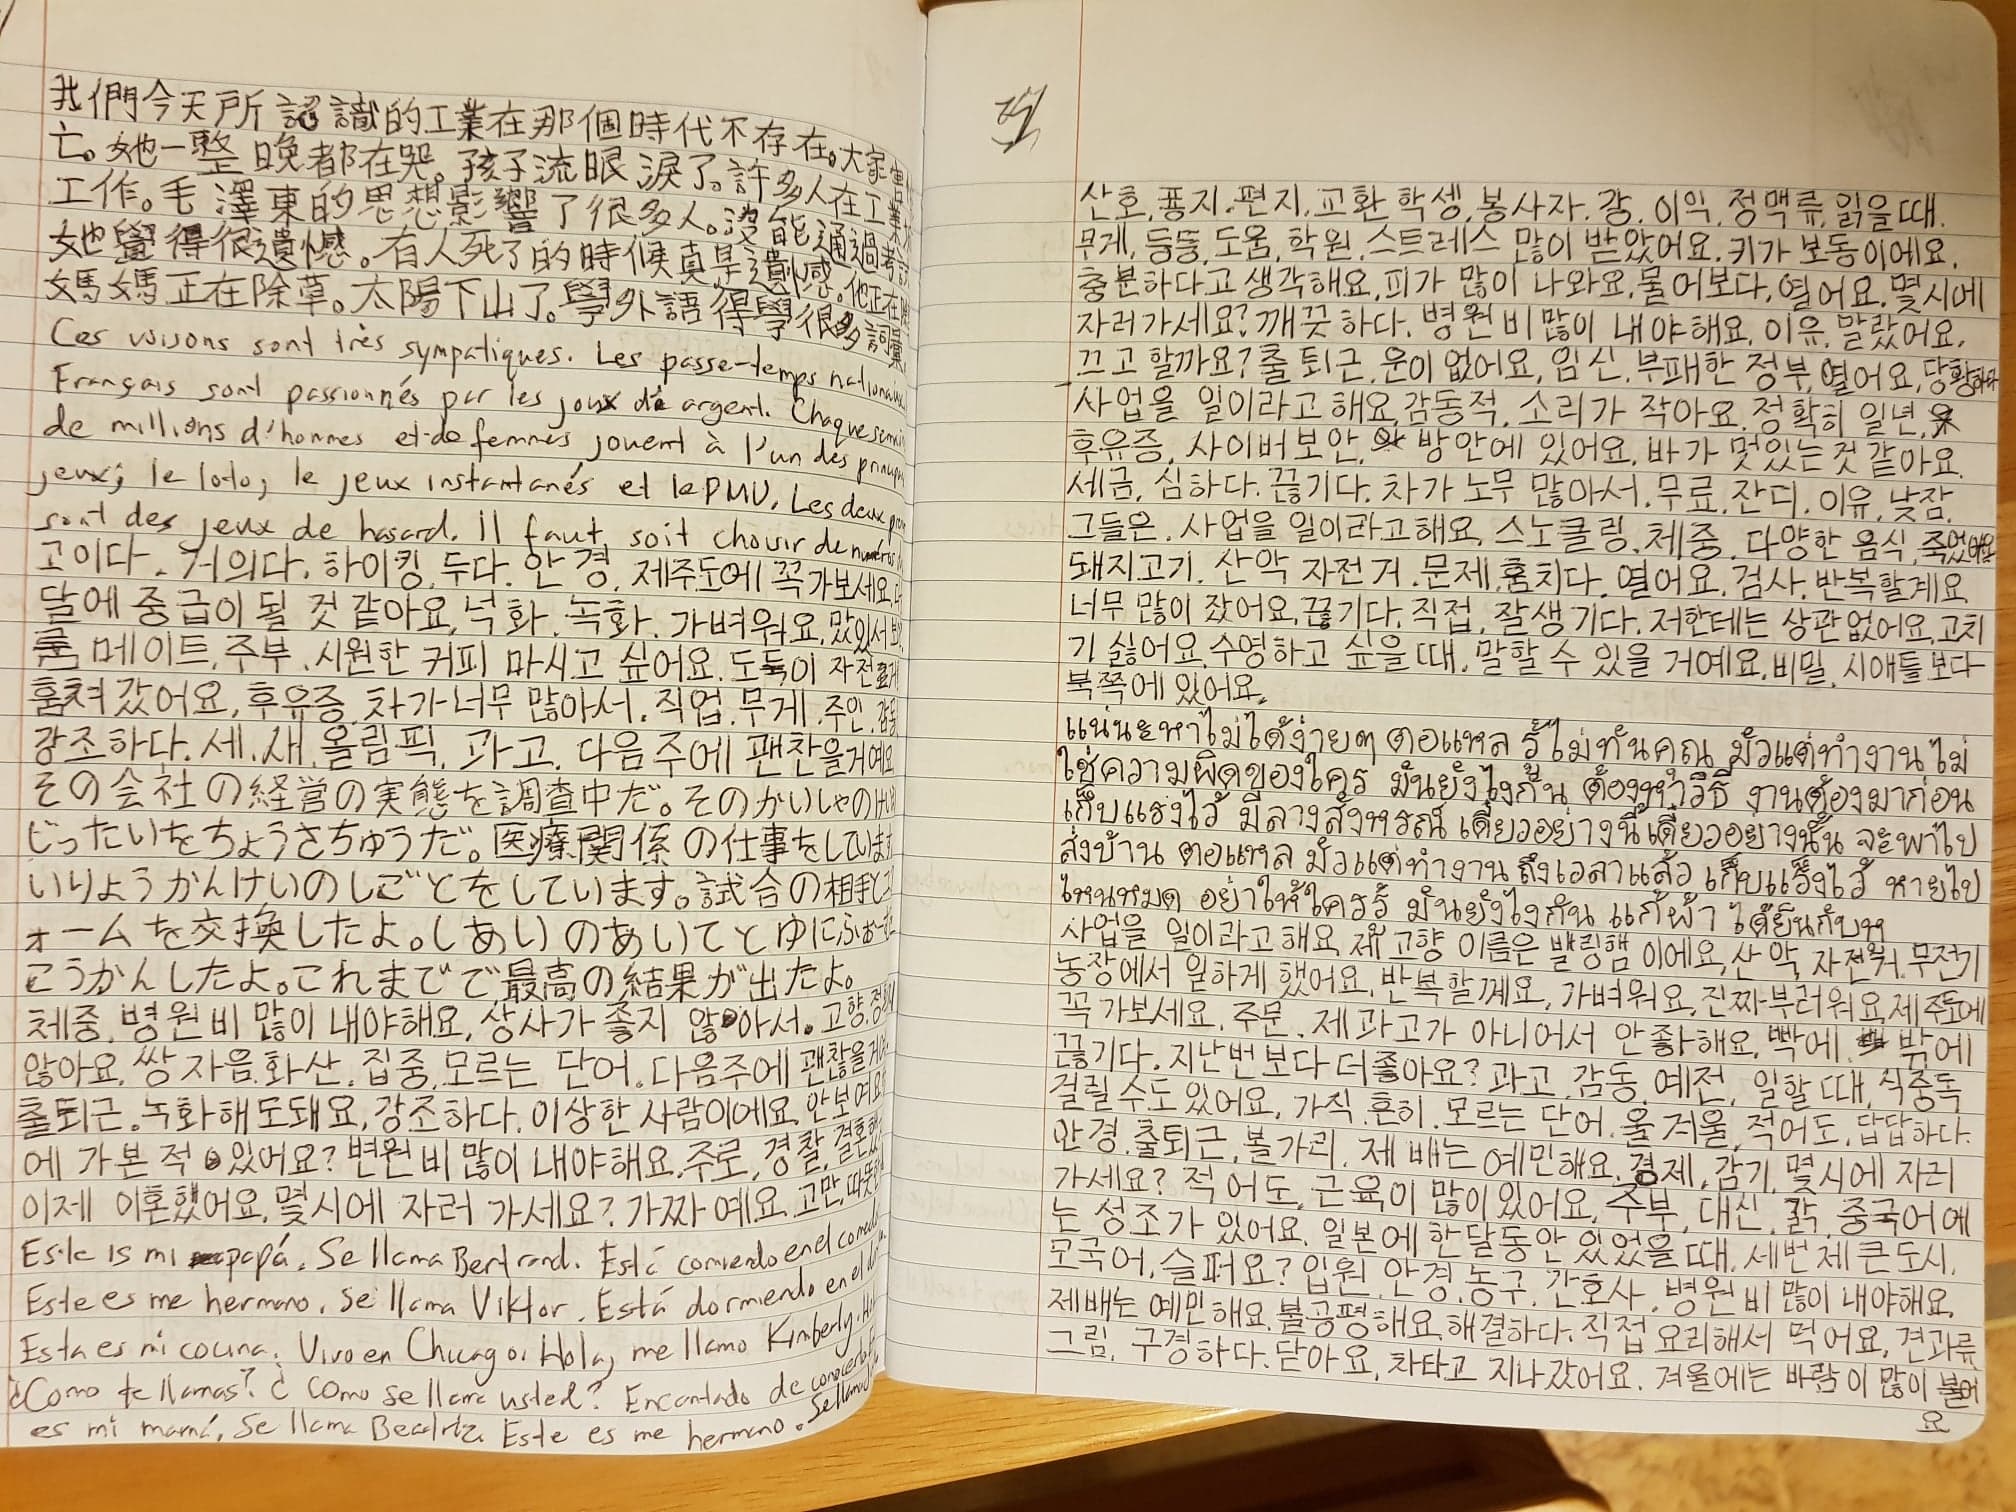 我們今天所認識的工業在那個時代不存在。大家
亡。她一整晚都在哭。孩子流眼淚了。許多人在工業
工作。毛澤東的思想影響了很多人。沒能通過考試
她覺得很遺憾。有人死了的時候真是遺憾。他正在
媽媽正在除草。太陽下山了。學外語得學很多詞彙
Ces voisons sont très sympatiques. Les passe-temps nationaux
Français sont passionnés par les joux de argent. Chaque
de millions d'honnes et de femmes jouent à l'un des
jeux; le loto, le jeux instantanés et le PMU. Les deux
sont des jeux de hasard. Il faut soit chousir de numéros
고이다. 거의다. 하이킹. 두다. 안경. 제주도에 꼭 가보세요.
달에 중급이 될 것 같아요. 넉화. 녹화. 가벼워요.
룸메이트. 주부. 시원한 커피 마시고 싶어요. 도둑이 자전
훔쳐 갔어요. 후유증. 차가 너무 많아서. 직업. 무게. 주인.
강조하다. 세. 새. 올림픽. 과고. 다음주에 괜찬을거예요
その会社の経営の実態を調査中だ。そのかいしゃのけい
じったいをちょうさちゅうだ。医療関係の仕事をしています
いりょうかんけいのしごとをしています。試合の相手と
ォームを交換したよ。しあいのあいてとゆにふぉー
こうかんしたよ。これまでで最高の結果が出たよ。
체중. 병원비 많이 내야해요. 상사가 좋지 않아서. 고향.
않아요. 쌍자음. 화산. 집중. 모르는 단어. 다음주에 괜찮을
출퇴근. 녹화해도돼요. 강조하다. 이상한 사람이에요. 안보여요
에 가본 적 있어요? 변원비 많이 내야해요. 주로, 경찰,
이제 이혼했어요. 몇시에 자러 가세요? 가짜예요. 고만.
Este is mi papá. Se llama Bertrand. Está comiendo en el
Este es me hermano. Se llama Viktor. Está dormiendo en el
Esta es mi cocina. Vivo en Chicago. Hola, me llamo Kimberly.
¿Como te llamas? ¿Como se llama usted? Encantado de conocerlo
es mi mamá, Se llama Beadriz. Este es me hermano. Se llama
산호. 표지. 편지. 교환학생. 봉사자. 강. 이익. 정맥류. 읽을때.
무게. 등뚱. 도움. 학원. 스트레스 많이 받았어요. 키가 보통이에요.
충분하다고 생각해요. 피가 많이 나와요. 물어보다. 열어요. 몇시에
자러가세요? 깨끗하다. 병원비 많이 내야해요. 이유. 말랐어요.
끄고 할까요? 출퇴근. 운이 없어요. 임신. 부패한 정부. 열어요. 당황하다
사업을 일이라고 해요. 감동적. 소리가 작아요. 정확히 일년.
후유증. 사이버보안. 방안에 있어요. 바가 멋있는것 같아요.
세금. 심하다. 끊기다. 차가 노무 많아서. 무료. 잔디. 이유. 낮잠.
그들은. 사업을 일이라고해요. 스노클링. 체중. 다양한 음식. 죽었어요
돼지고기. 산악 자전거. 문제. 훔치다. 열어요. 검사. 반복할게요
너무 많이 잤어요. 끊기다. 직접. 잘생기다. 저한테는 상관없어요. 고치
기 싫어요. 수영하고 싶을때. 말할 수 있을 거예요. 비밀. 시애틀보다
북쪽에 있어요.
แน่นะหาไม่ได้ง่ายๆ ตอแหล รู้ไม่ทันคุณ มัวแต่ทำงาน ไม่
ใช่ความผิดของใคร มันยังไงกัน ต้องหาวิธี งานต้องมาก่อน
เก็บแรงไว้ มีลางสังหรณ์ เดี๋ยวอย่างนี้เดี๋ยวอย่างนั้น จะพาไป
ส่งบ้าน ตอแหล มัวแต่ทำงาน ถึงเวลาแล้ว เก็บแรงไว้ หายไป
ไหนหมด อย่าให้ใครรู้ มันยังไงกัน แก้ผ้า ได้ยินกับหู
사업을 일이라고해요. 제 고향 이름은 밸링햄 이에요. 산악 자전거. 무전기
농장에서 일하게 했어요. 반복할께요. 가벼워요. 진짜 부러워요. 제주도에
꼭 가보세요. 주문. 제 과고가 아니어서 안좋해요. 빡에. 밖에
끊기다. 지난번보다 더좋아요? 과고. 감동. 예전. 일할 때. 식중독
걸릴 수도있어요. 가직. 흔히. 모르는 단어. 올겨울. 적어도. 답답하다.
안경. 출퇴근. 볼가리. 제 배는 예민해요. 경제. 감기. 몇시에 자러
가세요? 적어도. 근육이 많이있어요. 주부. 대신. 각. 중국어에
는 성조가 있어요. 일본에 한달동안 있었을때. 세번제 큰도시.
모국어. 슬퍼요? 입원. 안경. 농구. 간호사. 병원비 많이 내야해요.
제배는 예민해요. 불공평해요. 해결하다. 직접 요리해서 먹어요. 견과류.
그림. 구경하다. 닫아요. 차타고 지나갔어요. 겨울에는 바람이 많이 불어
요